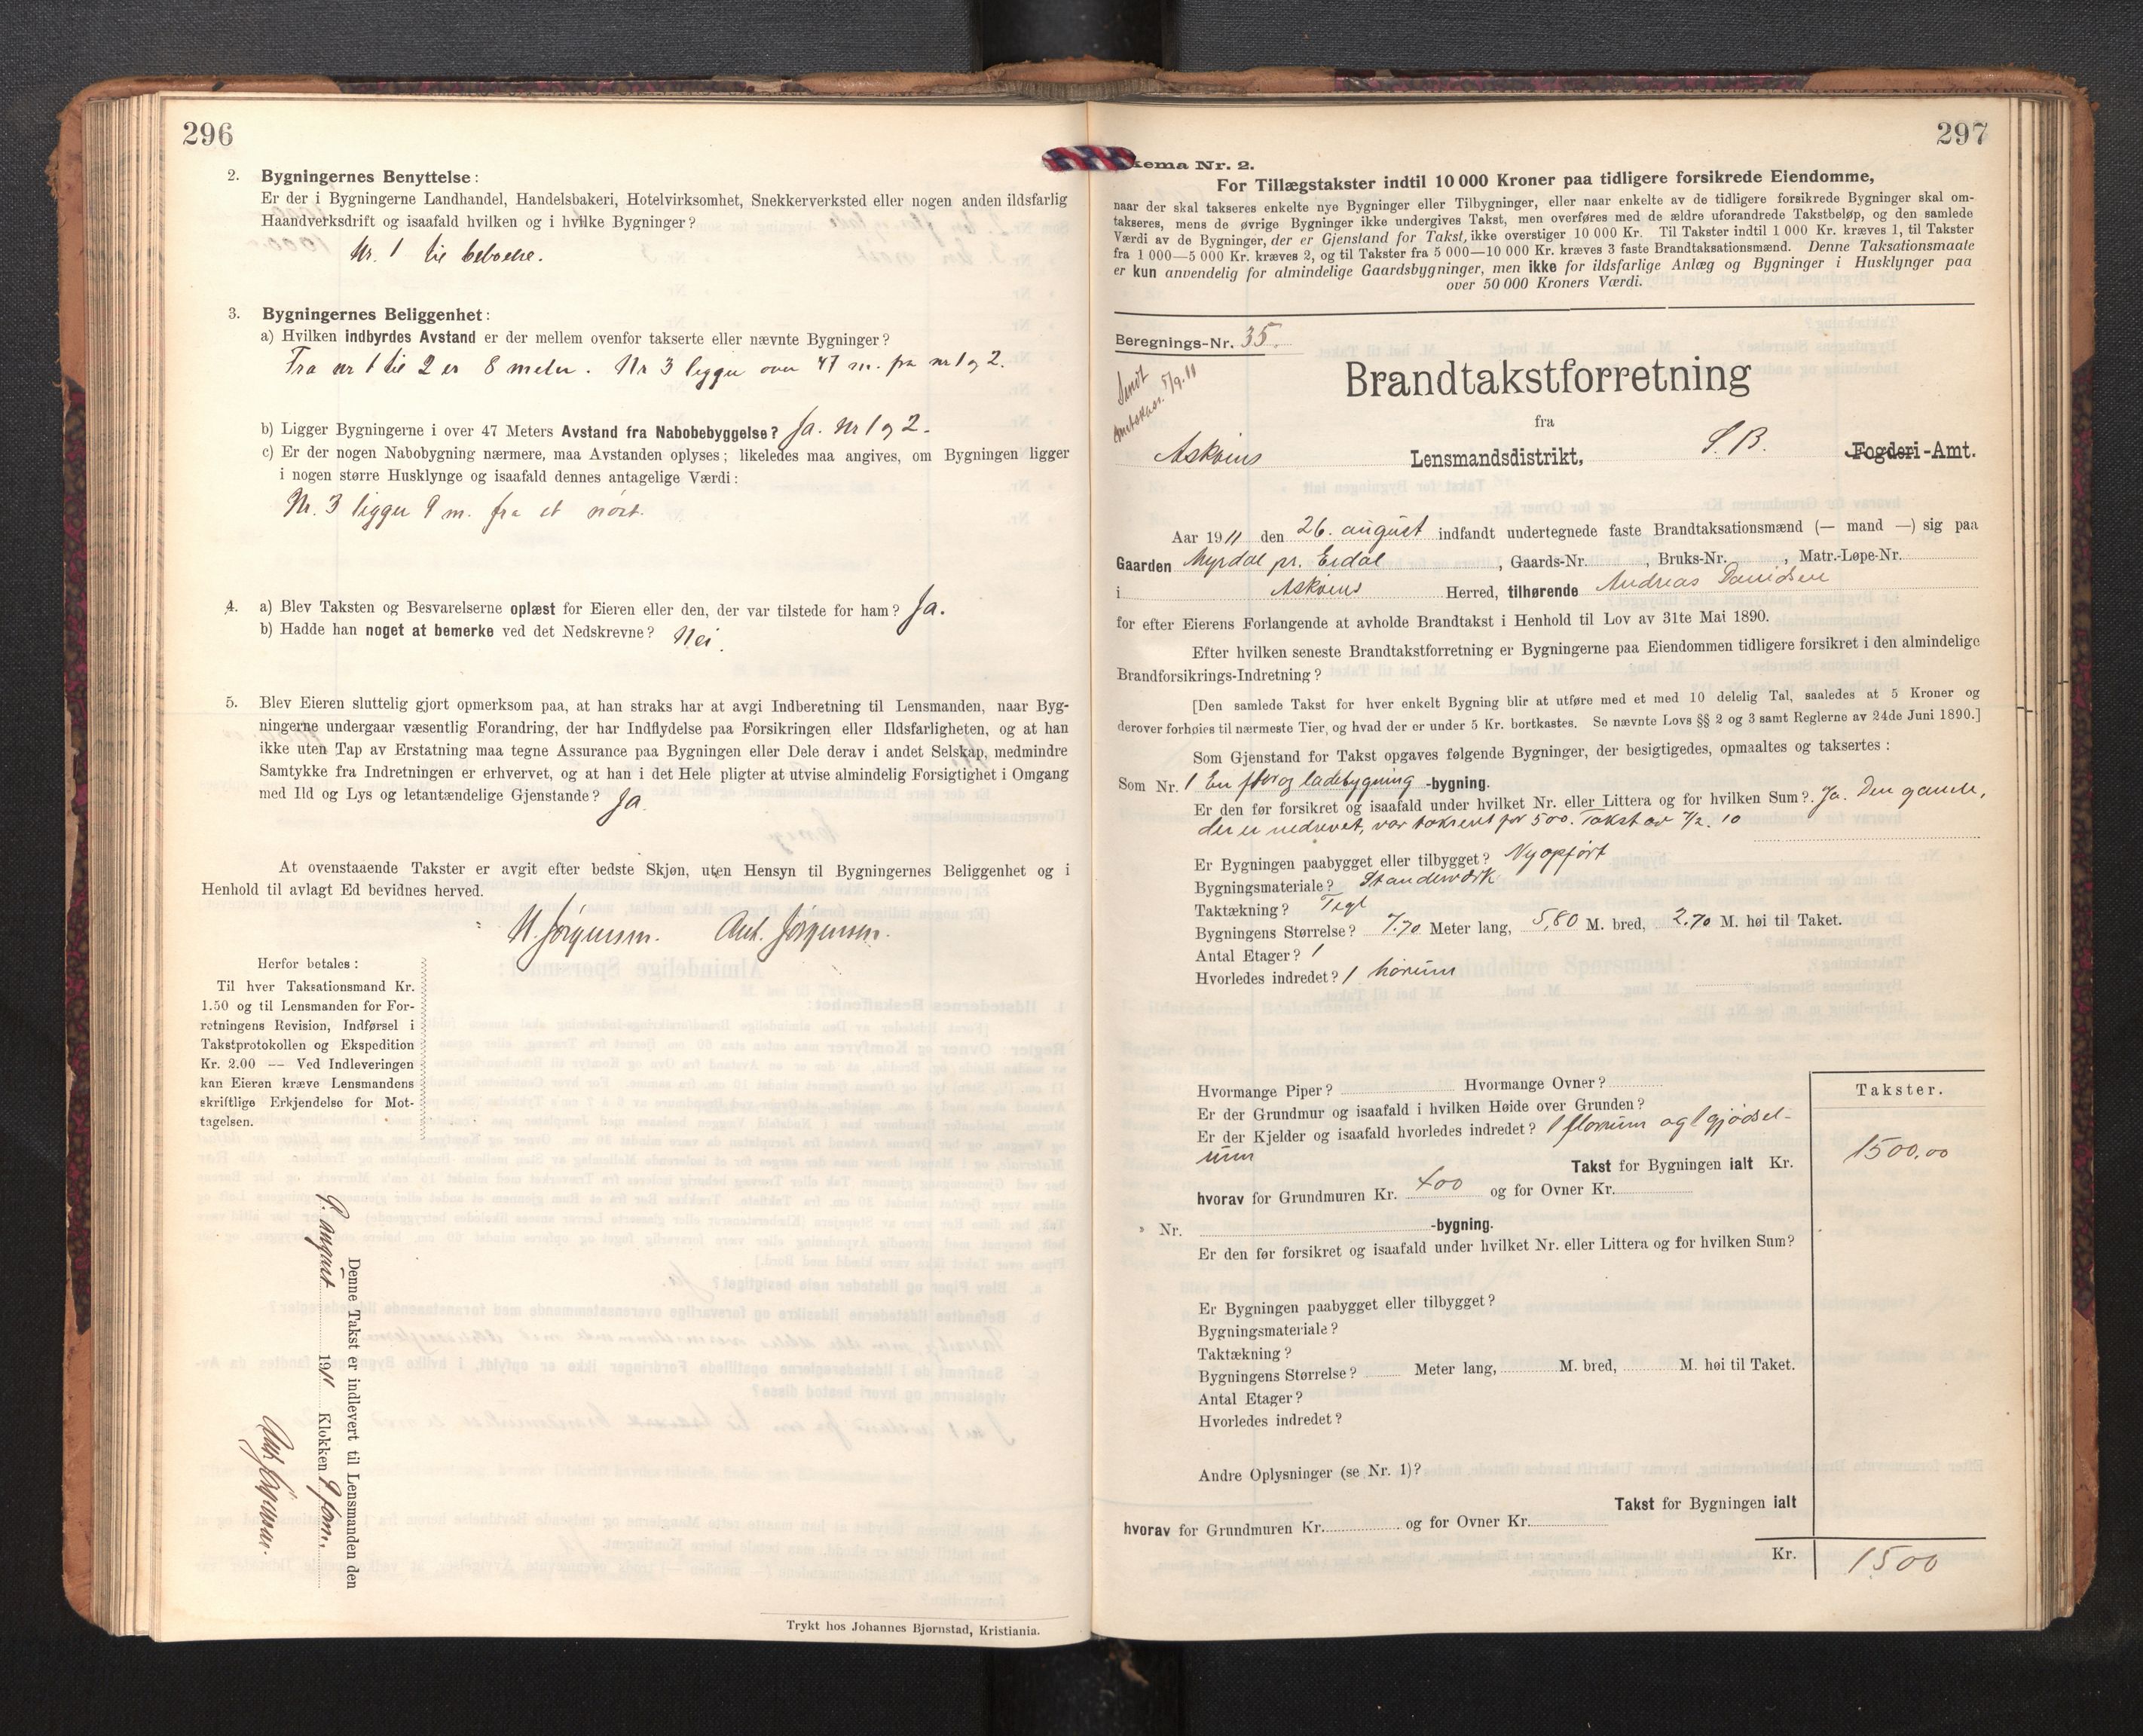 296
2. Bygningernes Benyttelse:
Er der i Bygningerne Landhandel, Handelsbakeri, Hotelvirksomhet, Snekkerverksted eller nogen anden ildsfarlig
Haandverksdrift og isaafald hvilken og i hvilke Bygninger?
Nr. 1 til beboelse.
3. Bygningernes Beliggenhet:
a) Hvilken indbyrdes Avstand er der mellem ovenfor takserte eller nævnte Bygninger?
Fra nr 1 til 2 er 8 meter. Nr 3 ligger over 47 m. fra nr 1 og 2.
b) Ligger Bygningerne i over 47 Meters Avstand fra Nabobebyggelse? Ja. Nr 1 og 2.
c) Er der nogen Nabobygning nærmere, maa Avstanden oplyses; likeledes maa angives, om Bygningen ligger
i nogen større Husklynge og isaafald dennes antagelige Værdi:
Nr. 3 ligger 9 m. fra et nöst.
4. a) Blev Taksten og Besvarelserne oplæst for Eieren eller den, der var tilstede for ham? Ja.
b) Hadde han noget at bemerke ved det Nedskrevne? Nei.
5. Blev Eieren sluttelig gjort opmerksom paa, at han straks har at avgi Indberetning til Lensmanden, naar Byg-
ningerne undergaar væsentlig Forandring, der har Indflydelse paa Forsikringen eller Ildsfarligheten, og at han
ikke uten Tap av Erstatning maa tegne Assurance paa Bygningen eller Dele derav i andet Selskap, medmindre
Samtykke fra Indretningen er erhvervet, og at han i det Hele pligter at utvise almindelig Forsigtighet i Omgang
med Ild og Lys og letantændelige Gjenstande? Ja.
At ovenstaaende Takster er avgit efter bedste Skjøn, uten Hensyn til Bygningernes Beliggenhet og i
Henhold til avlagt Ed bevidnes herved.
N. Jörgensen. Ant. Jörgensen.
Herfor betales:
Til hver Taksationsmand Kr.
1.50 og til Lensmanden for For-
retningens Revision, Indførsel i
Takstprotokollen og Ekspedition
Kr. 2.00 — Ved Indleveringen
kan Eieren kræve Lensmandens
skriftlige Erkjendelse for Mot-
tagelsen.
Denne Takst er indlevert til Lensmanden den
9. august 1911 Klokken 9 form.
Ant. Jörgensen.
Trykt hos Johannes Bjørnstad, Kristiania.
297
kema Nr. 2.
For Tillægstakster indtil 10 000 Kroner paa tidligere forsikrede Eiendomme,
naar der skal takseres enkelte nye Bygninger eller Tilbygninger, eller naar enkelte av de tidligere forsikrede Bygninger skal om-
takseres, mens de øvrige Bygninger ikke undergives Takst, men overføres med de ældre uforandrede Takstbeløp, og den samlede
Værdi av de Bygninger, der er Gjenstand for Takst, ikke overstiger 10 000 Kr. Til Takster indtil 1 000 Kr. kræves 1, til Takster
fra 1 000—5 000 Kr. kræves 2, og til Takster fra 5 000—10 000 Kr. kræves 3 faste Brandtaksationsmænd. Denne Taksationsmaate
er kun anvendelig for almindelige Gaardsbygninger, men ikke for ildsfarlige Anlæg og Bygninger i Husklynger paa
over 50 000 Kroners Værdi.
Beregnings-Nr. 35.
Sendt
Amtskas. 5/9.11
Brandtakstforretning
fra
Askøens Lensmandsdistrikt, S. B. Fogderi-Amt.
Aar 1911 den 26. august indfandt undertegnede faste Brandtaksationsmænd (— mand —) sig paa
Gaarden Myrdal pr. Eidal, Gaards-Nr. , Bruks-Nr. , Matr.-Løpe-Nr.
i Askøens Herred, tilhørende Andreas Davidsen
for efter Eierens Forlangende at avholde Brandtakst i Henhold til Lov av 31te Mai 1890.
Efter hvilken seneste Brandtakstforretning er Bygningerne paa Eiendommen tidligere forsikret i den almindelige
Brandforsikrings-Indretning?
[Den samlede Takst for hver enkelt Bygning blir at utføre med et med 10 delelig Tal, saaledes at 5 Kroner og
derover forhøies til nærmeste Tier, og hvad der er under 5 Kr. bortkastes. Se nævnte Lovs §§ 2 og 3 samt Reglerne av 24de Juni 1890.]
Som Gjenstand for Takst opgaves følgende Bygninger, der besigtigedes, opmaaltes og taksertes:
Som Nr. 1 En flor og ladebygning -bygning.
Er den før forsikret og isaafald under hvilket Nr. eller Littera og for hvilken Sum? Ja. Den gamle,
der er nedrevet, var taksert for 500. Takst av 7/2. 10
Er Bygningen paabygget eller tilbygget? Nyopført
Bygningsmateriale? Standerværk
Taktækning? Tegl
Bygningens Størrelse? 7.70 Meter lang, 5,80 M. bred, 2.70 M. høi til Taket.
Antal Etager? 1
Hvorledes indredet? 1 hörum
Hvormange Piper? Hvormange Ovner?
Er der Grundmur og isaafald i hvilken Høide over Grunden?
Er der Kjelder og isaafald hvorledes indredet? 1 florrum og 1 gjødsel-
rum
Takst for Bygningen ialt Kr.
Takster.
1500,00
hvorav for Grundmuren Kr. 400 og for Ovner Kr.
» Nr. -bygning.
Er den før forsikret og isaafald under hvilket Nr. eller Littera og for hvilken Sum?
Er Bygningen paabygget eller tilbygget?
Bygningsmateriale?
Taktækning?
Bygningens Størrelse? Meter lang, M. bred, M. høi til Taket.
Antal Etager?
Hvorledes indredet?
Andre Oplysninger (se Nr. 1)?
Takst for Bygningen ialt
hvorav for Grundmuren Kr. og for Ovner Kr.
Kr. 1500